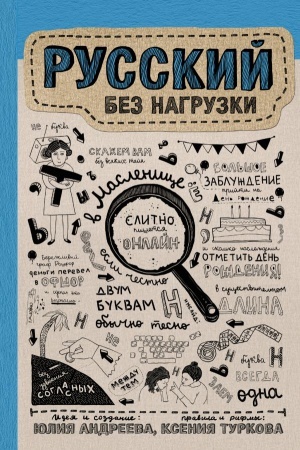 РУССКИЙ
БЕЗ НАГРУЗКИ
не
буква
СКАЖЕМ ВАМ
без всяких тайн
БОЛЬШОЕ
ЗАБЛУЖДЕНИЕ
прийти на
день рождение
в Масленице
слитно
пишется
ОНЛАЙН
деньги перевёл
в ОФШОР
если честно
ДВУМ
БУКВАМ
обычно тесно
ОТМЕТИТЬ ДЕНЬ
РОЖДЕНИЯ!
в существительном
ДЛИНА
Н
буква
Н
ВСЕГДА
одна
без
СОГЛАСНЫХ
между
тем
Идея и создание:
правила и рифмы:
ЮЛИЯ АНДРЕЕВА, КСЕНИЯ ТУРКОВА